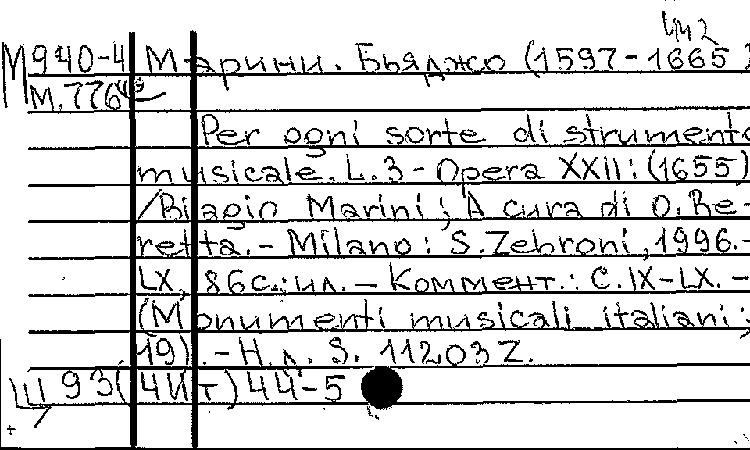 442
М940-4 Марини. Бьяджо (1597-1665)
М.776
Per ogni sorte di strumento
musicale. L.3 - Opera XXII: (1655)
/Biagio Marini; A cura di O. Be-
retta. - Milano: S. Zebroni, 1996. -
LX, 86с.: ил. - Коммент.: С. IX-LX. -
(Monumenti musicali italiani;
19). - Н.д. S. 11203 Z.
Ш 93(4Ит)44-5